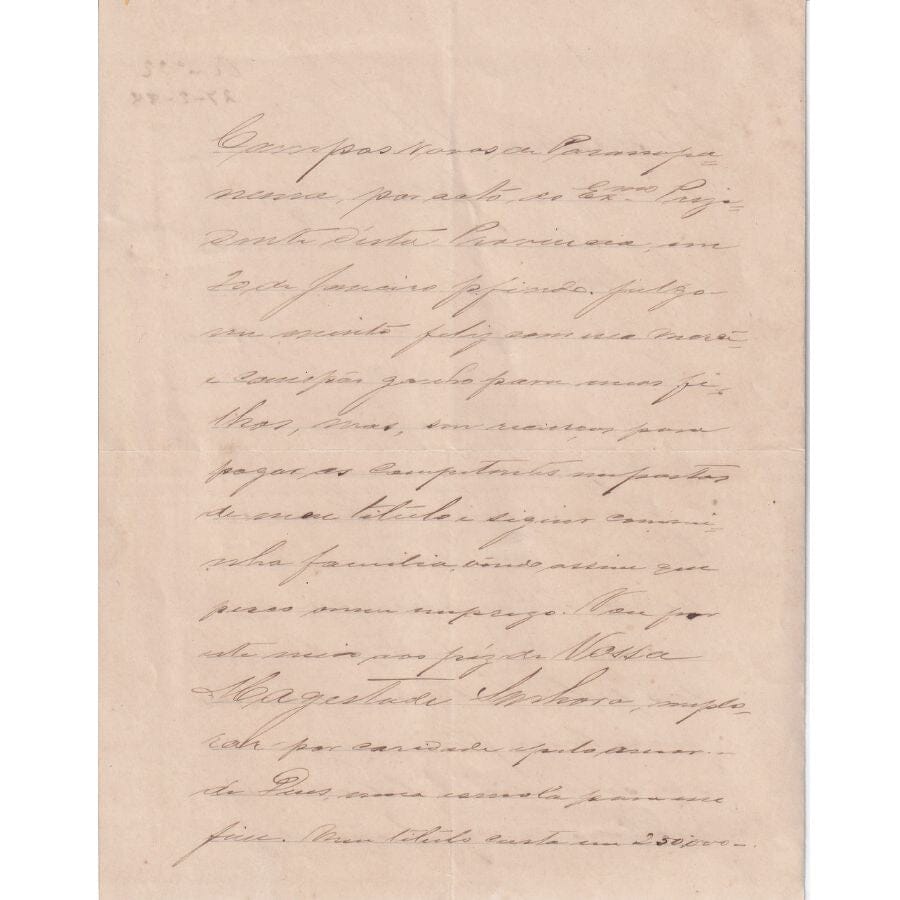 Campos Novos de Paranapa-
nema, por acto do Exmo. Prezi=
dente d'esta Provincia, em
20 de Janeiro pp. findo. Julgo-
me muito feliz com essa mercê
e com pão ganho para meus fi-
lhos, mas, sem recursos para
pagar os competentes impostos
de meu titulo e siguir com mi-
nha familia, vendo assim que
perco meu emprego. Vou por
este meio aos péz de Vossa
Magestade Senhora, implo-
rar por caridade e pelo amor
de Deus, uma esmola para esse
fim. Meu titulo custa em 250,000-